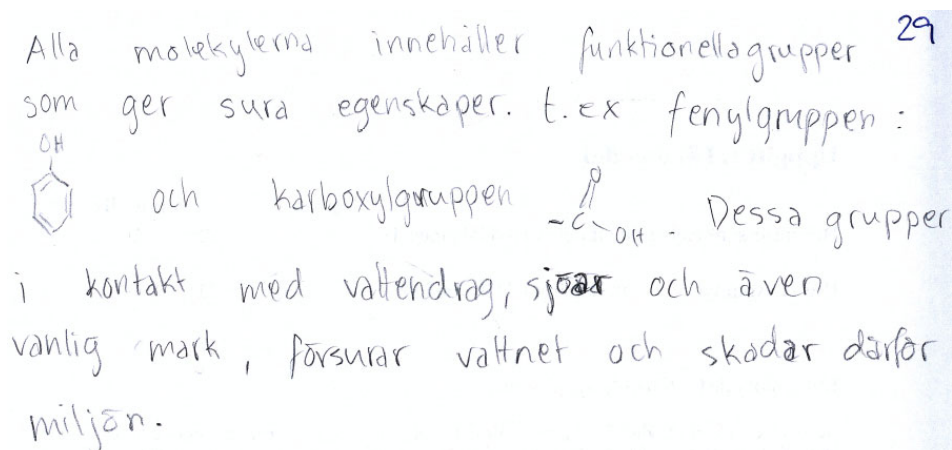 29
Alla molekylerna innehåller funktionella grupper
som ger sura egenskaper. t.ex fenylgruppen:
OH
och karboxylgruppen -C=O OH. Dessa grupper
i kontakt med vattendrag, sjöar och även
vanlig mark, försurar vattnet och skadar därför
miljön.